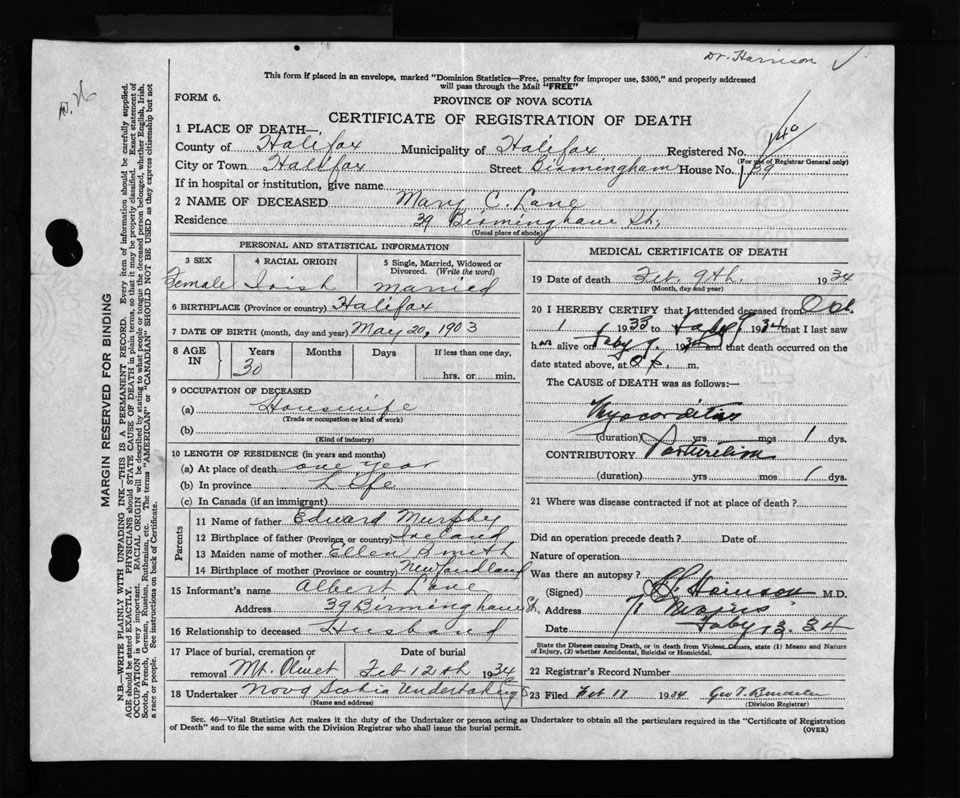 Dr. Harrison
This form if placed in an envelope, marked "Dominion Statistics—Free, penalty for improper use, $300," and properly addressed
will pass through the Mail "FREE"
FORM 6.
PROVINCE OF NOVA SCOTIA
CERTIFICATE OF REGISTRATION OF DEATH
1 PLACE OF DEATH—
County of Halifax Municipality of Halifax Registered No. 140
(For use of Registrar General only)
City or Town Halifax Street Birmingham House No. 39
If in hospital or institution, give name
2 NAME OF DECEASED Mary C. Lane
Residence 39 Birmingham St.
(Usual place of abode)
PERSONAL AND STATISTICAL INFORMATION
3 SEX 4 RACIAL ORIGIN 5 Single, Married, Widowed or Divorced. (Write the word)
Female Irish Married
6 BIRTHPLACE (Province or country) Halifax
7 DATE OF BIRTH (month, day and year) May 20, 1903
8 AGE IN Years Months Days If less than one day,
30 hrs. or min.
9 OCCUPATION OF DECEASED
(a) Housewife
(Trade or occupation or kind of work)
(b)
(Kind of industry)
10 LENGTH OF RESIDENCE (in years and months)
(a) At place of death one year
(b) In province Life
(c) In Canada (if an immigrant)
Parents
11 Name of father Edward Murphy
12 Birthplace of father (Province or country) Ireland
13 Maiden name of mother Ellen Smith
14 Birthplace of mother (Province or country) Newfandland
15 Informant's name Albert Lane
Address 39 Birmingham St.
16 Relationship to deceased Husband
17 Place of burial, cremation or Date of burial
removal Mt. Olivet Feb 12th 1934
18 Undertaker Nova Scotia Undertaking
(Name and address)
MEDICAL CERTIFICATE OF DEATH
19 Date of death Feb. 9th. 1934
(Month, day and year)
20 I HEREBY CERTIFY that I attended deceased from Oct.
1 1933 to Faby 9 1934 that I last saw
h er alive on Faby 9 1934 and that death occurred on the
date stated above, at m.
The CAUSE OF DEATH was as follows:
Myocarditis
(duration) yrs mos 1 dys.
CONTRIBUTORY Parturition
(duration) yrs mos 1 dys.
21 Where was disease contracted if not at place of death?
Did an operation precede death? Date of
Nature of operation
Was there an autopsy?
(Signed) Harrison M.D.
Address 71 Morris
Date Faby 13. 34
State the Disease causing Death, or in death from Violent Causes, state (1) Means and Nature
of Injury, (2) whether Accidental, Suicidal or Homicidal.
22 Registrar's Record Number
23 Filed Feb 17 1934 Geo T.
(Division Registrar)
Sec. 46—Vital Statistics Act makes it the duty of the Undertaker or person acting as Undertaker to obtain all the particulars required in the "Certificate of Registration
of Death" and to file the same with the Division Registrar who shall issue the burial permit.
(OVER)
MARGIN RESERVED FOR BINDING
N.B.—WRITE PLAINLY WITH UNFADING INK—THIS IS A PERMANENT RECORD. Every item of information should be carefully supplied.
AGE should be stated EXACTLY. PHYSICIANS should STATE CAUSE OF DEATH in plain terms, so that it may be properly classified. Exact statement of
OCCUPATION is very important. RACIAL ORIGIN will be described by stating to what people or tongue the deceased person belonged, whether English, Irish,
Scotch, French, German, Russian, Ruthenian, etc. The terms "AMERICAN" or "CANADIAN" SHOULD NOT BE USED as they express citizenship but not
a race or people. See instructions on back of Certificate.